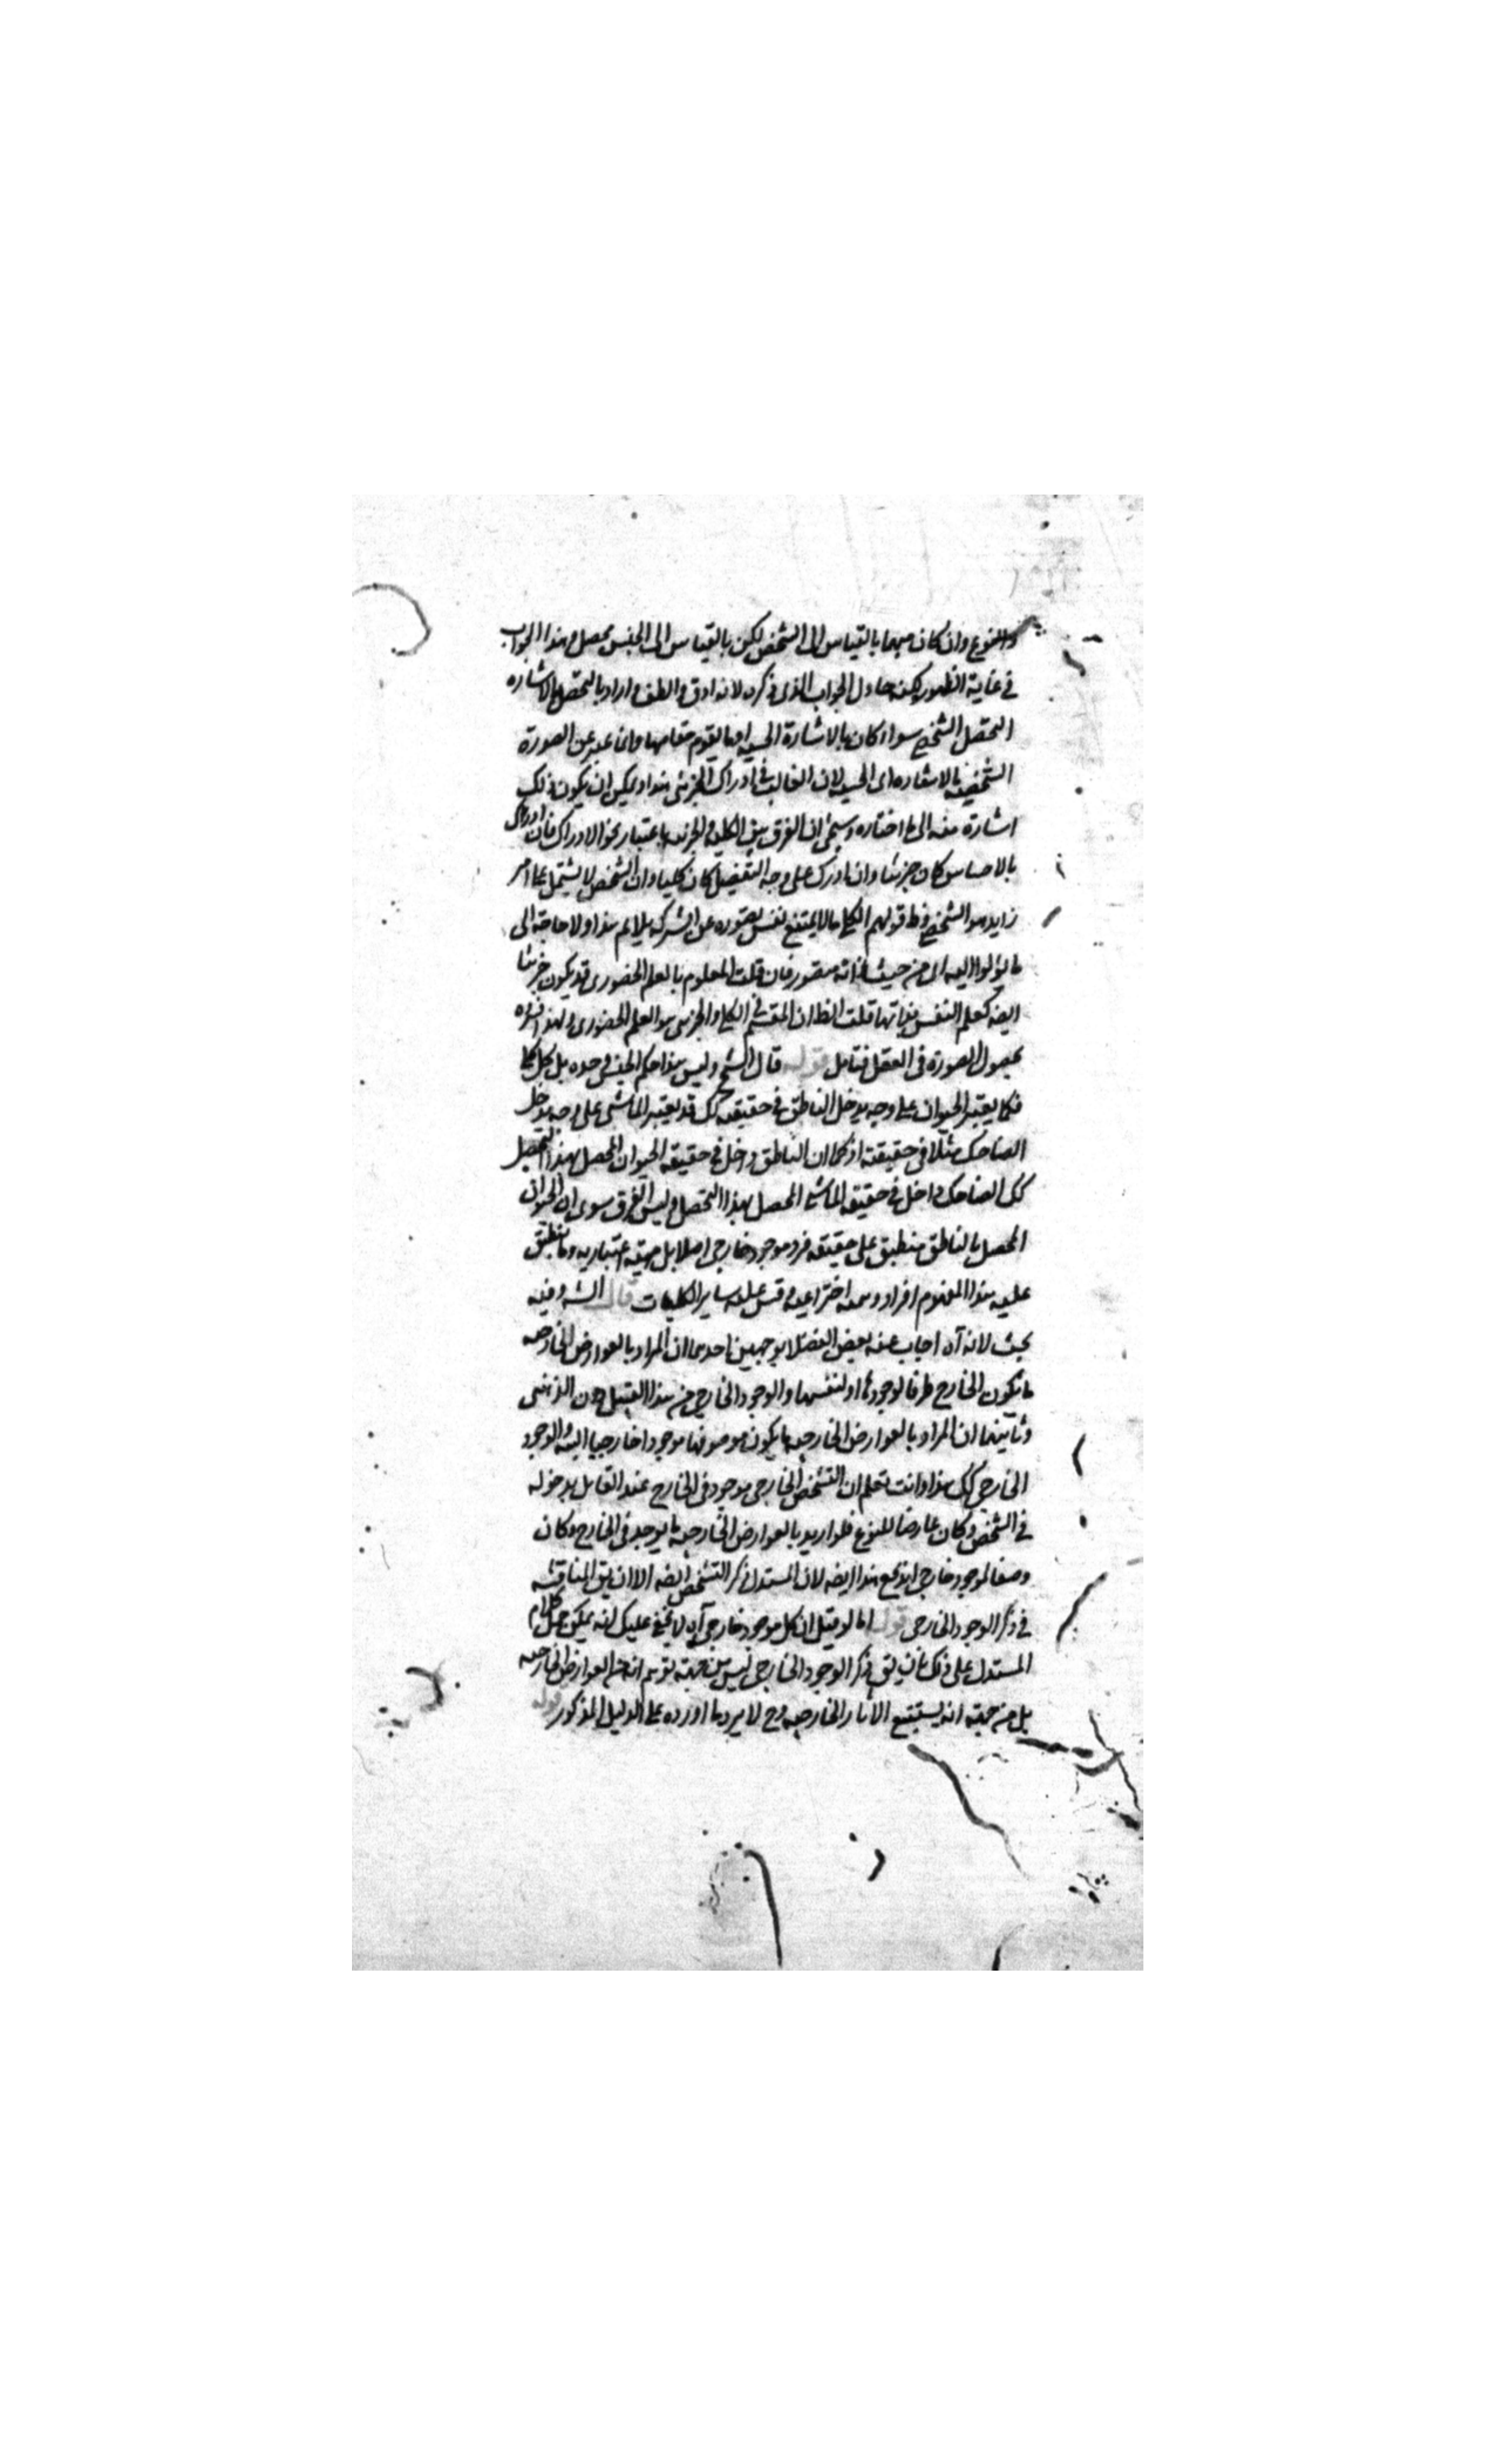 والنوع وان كان مبهما بالقياس الى الشخص لكن بالقياس الى الجنس محصل وهذا الجواب
في غاية الظهور لكنه حاول الجواب الذى ذكره لانه ادق والطف واراد بالتحصل بالاشاره
التحصل الشخصي سواء كان بالاشارة الحسيه او ما يقوم مقامها وانما عبر عن الصورة
الشخصية بالاشاره اى الحسيه لان الغالب في ادراك الجزئى هذا ويمكن ان يكون ذلك
اشارة منه الى ما اختاره وسيجئ ان الفرق بين الكلي والجزئيه باعتبار نحو الادراك فان ادرك
بالاحساس كان جزئيا وان ادرك على وجه التفصيل كان كليا وان الشخص لا يشتمل على امر
زايد هو التشخص وظ قولهم الكلي ما لا يمتنع نفس تصوره عن الشركه يلايم هذا ولا حاجة الى
ما يؤلوا اليه اى من حيث انه متصور فان قلت المعلوم بالعلم الحضورى قد يكون جزئيا
ايضه كعلم النفس بذاتها قلت الظ ان المقسم في الكلي والجزئى هو العلم الحضورى ولهذا فسره
بحصول الصورة فى العقل فتامل قوله قال الشيخ وليس هذا حكم الجنس وحده بل كل كلي
فكما يعتبر الحيوان على وجه يدخل الناطق في حقيقته كك قد يعتبر الماشى على وجه يدخل
الضاحك مثلا في حقيقته اذ كما ان الناطق داخل في حقيقة الحيوان المحصل بهذا التحصل
كك الضاحك داخل في حقيقة الماشي المحصل بهذا التحصل وليس الفرق سوى ان الحيوان
المحصل بالناطق منطبق على حقيقة فرد موجود خارجي اصلا بل مهية اعتباريه وما ينطبق
عليه هذا المفهوم افراد وهميه اختراعيه وقس عليه ساير الكليات قال الشه وفيه
بحث لانه آه اجاب عنه بعض الفضلا بوجهين احدهما ان المراد بالعوارض الخارجيه
ما يكون الخارج ظرفا لوجودها او لنفسها والوجود الخارجي من هذا القبيل دون الذهنى
وثانيهما ان المراد بالعوارض الخارجيه ما يكون موصوفها موجودا خارجيا البته والوجود
الخارجي كك هذا وانت تعلم ان التشخص الخارجى موجود فى الخارج عند القايل بدخوله
في الشخص وكان عارضا للنوع فلو اريد بالعوارض الخارجيه ما يوجد فى الخارج وكان
وصفا لموجود خارجي اندفع هذا ايضه لان المستدل ذكر التشخص ايضه الا ان يق المناقشه
في ذكر الوجود الخارجى قوله اما لو قيل ان كل موجود خارجي آه لا يخفى عليك انه يمكن حمل كلام
المستدل على ذلك بان يق ذكر الوجود الخارجى ليس من جهة توهم انه من العوارض الخارجيه
بل من جهة انه يستتبع الآثار الخارجيه وح لا يرد ما اورده على الدليل المذكور قوله